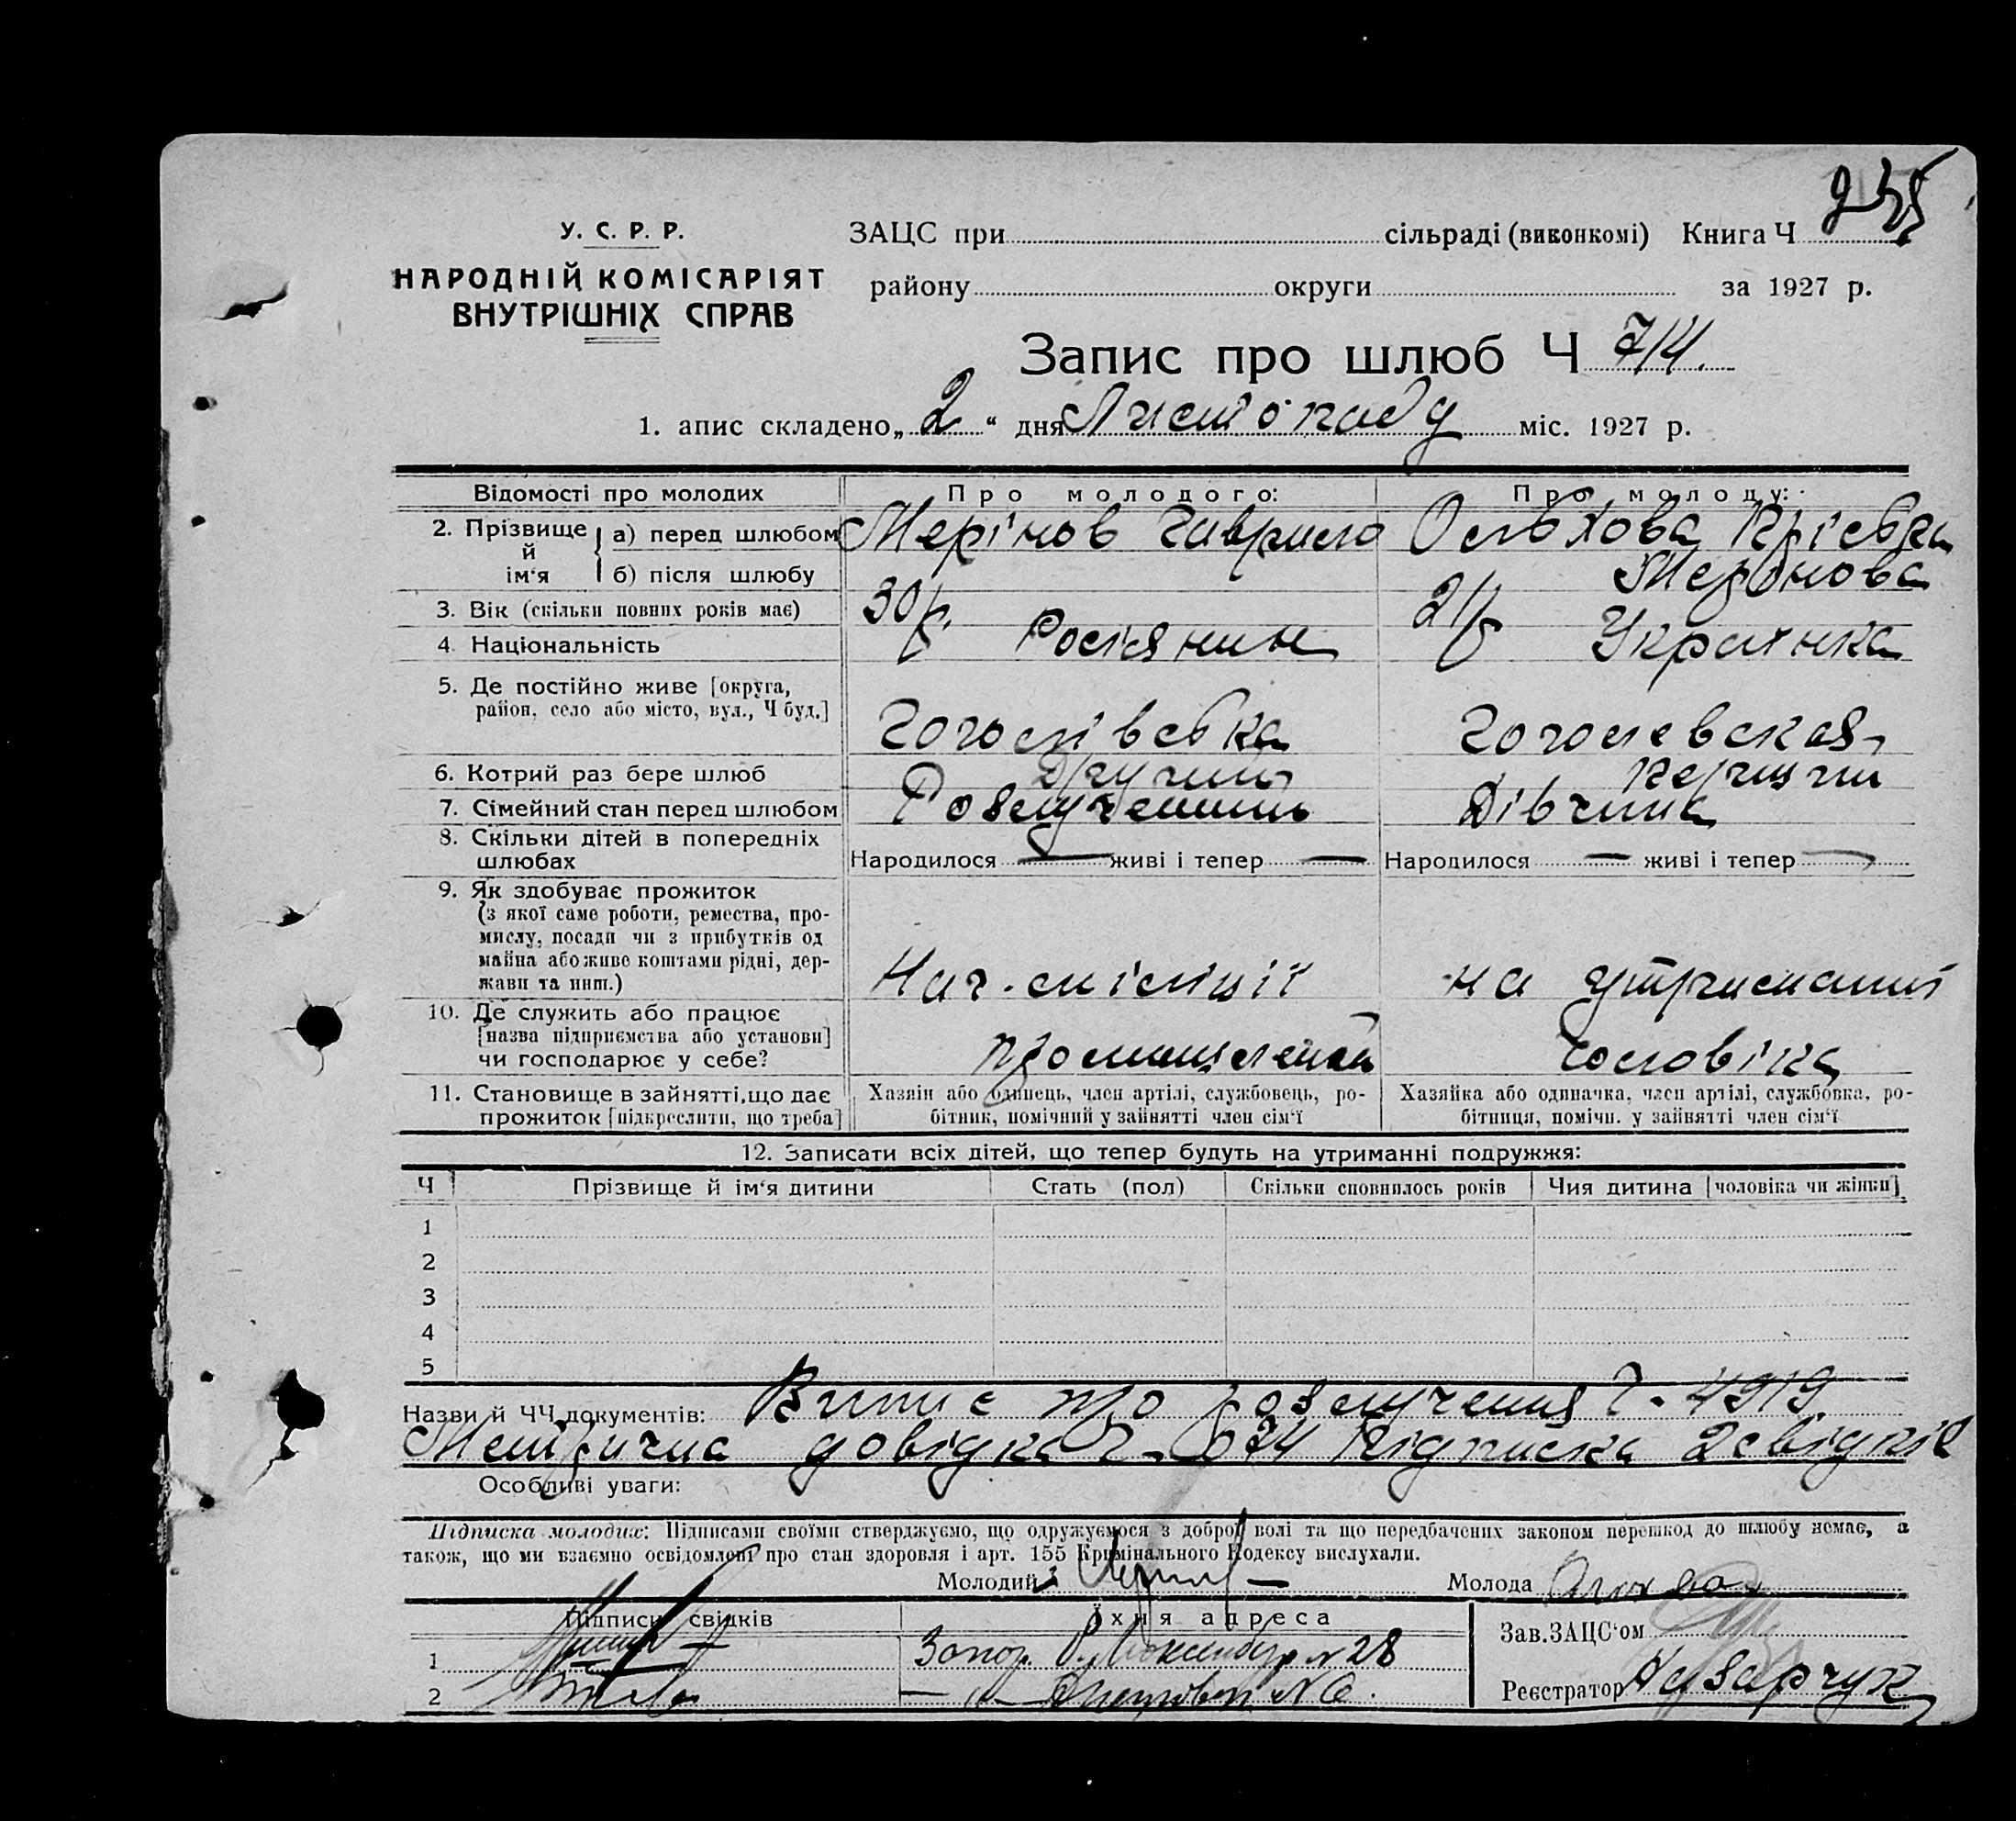 235
У. С. Р. Р.
НАРОДНІЙ КОМІСАРІЯТ
ВНУТРІШНІХ СПРАВ
ЗАЦС при сільраді (виконкомі) Книга Ч
району округи за 1927 р.
Запис про шлюб Ч 714.
1. апис складено „ 2 “ дня Листопаду міс. 1927 р.
Відомості про молодих Про молодого: Про молоду:
2. Прізвище й ім‘я а) перед шлюбом Мерінов Гаврило Ольхова
б) після шлюбу Мерінова
3. Вік (скільки повних років має) 30 р. 21 р
4. Національність Росіянин Українка
5. Де постійно живе [округа,
район, село або місто, вул., Ч буд.] Гоголівська Гоголевская
6. Котрий раз бере шлюб Другий Перший
7. Сімейний стан перед шлюбом Розлучений Дівчина
8. Скільки дітей в попередніх
шлюбах Народилося — живі і тепер — Народилося — живі і тепер —
9. Як здобуває прожиток
(з якої саме роботи, ремества, про-
мислу, посади чи з прибутків од
майна або живе коштами рідні, дер-
жави та инш.) Нач. міліції на утриманні
10. Де служить або працює
[назва підприємства або установи]
чи господарює у себе? чоловіка
11. Становище в зайнятті, що дає
прожиток [підкреслити, що треба]
Хазяін або одинець, член артілі, службовець, ро-
бітник, помічний у зайнятті член сім‘ї
Хазяйка або одиначка, член артілі, службовка, ро-
бітниця, помічн. у зайнятті член сім‘ї
12. Записати всіх дітей, що тепер будуть на утриманні подружжя:
Ч Прізвище й ім‘я дитини Стать (пол) Скільки сповнилось років Чия дитина [чоловіка чи жінки]
1
2
3
4
5
Назви й ЧЧ документів: Випис про розлучення Ч. 4919
Метрична довідка Ч. 674 Підписка 2 свідків
Особливі уваги:
Підписка молодих: Підписами своїми стверджуємо, що одружуємося з доброї волі та що передбачених законом перешкод до шлюбу немає, а
також, що ми взаємно освідомлені про стан здоровля і арт. 155 Кримінального Кодексу вислухали.
Молодий Молода Ольхова
Підписи свідків Їхня адреса Зав. ЗАЦС‘ом
1 Запор. № 28
2 — „ — №
Реєстратор